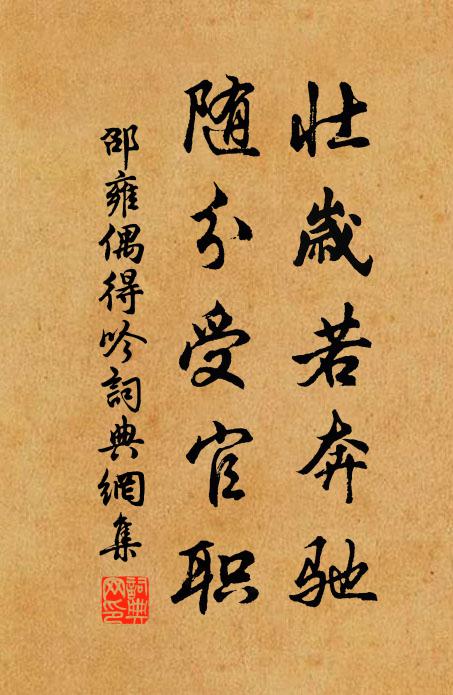 壮歲若奔驰
随分受官职
邵雍偶得吟詞典網集
詞典網印